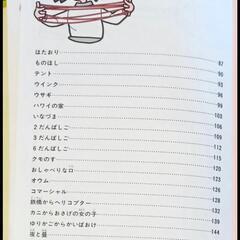 はたおり
ものほし 87
テント 90
ウインク 90
ウサギ 93
ハワイの家 96
いなづま 99
2だんばしご 103
3だんばしご 109
6だんばしご 112
クモのす 114
おしゃべりな口 119
オウム 122
コマーシャル 126
鉄橋からヘリコプター 129
カニからおさげの女の子 136
ゆりかごからかいばおけ 139
144